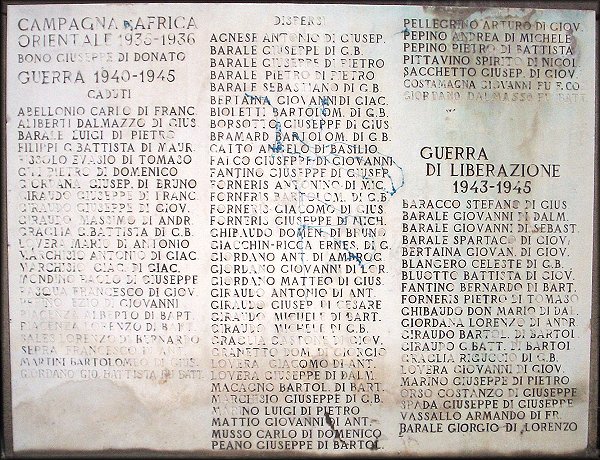 CAMPAGNA D'AFRICA
ORIENTALE 1935-1936
BONO GIUSEPPE DI DONATO
GUERRA 1940-1945
CADUTI
ABELLONIO CARLO DI FRANC.
ALIBERTI DALMAZZO DI GIUS
BARALE LUIGI DI PIETRO
FILIPPI G.BATTISTA DI MAUR.
FISSOLO EVASIO DI TOMASO
PIETRO DI DOMENICO
GIORDANA GIUSEP. DI BRUNO
GIRAUDO GIUSEPPE DI FRANC
GIRAUDO GIUSEPPE DI GIOV.
GIRAUDO MASSIMO DI ANDR.
GRAGLIA G.BATTISTA DI G.B.
LOVERA MARIO DI ANTONIO
MARCHISIO ANTONIO DI GIAC
MARCHISIO GIAC. DI GIAC.
MONDINO PAOLO DI GIUSEPPE
FRANCESCO DI GIOV.
EZIO DI GIOVANNI
PIACENZA ALBERTO DI BART.
PIACENZA LORENZO DI BART.
SALES LORENZO DI BERNARDO
SERRA FRANCESCO DI
MARTINI BARTOLOMEO DI GIUS.
GIORDANO GIO. BATTISTA DI BATT.
DISPERSI
AGNESE ANTONIO DI GIUSEP.
BARALE GIUSEPPE DI G.B.
BARALE GIUSEPPE DI PIETRO
BARALE PIETRO DI PIETRO
BARALE SEBASTIANO DI G.B.
BERTAINA GIOVANNI DI GIAC.
BIOLETTI BARTOLOM. DI G.B.
BORSOTTO GIUSEPPE DI GIUS
BRAMARD BARTOLOM. DI G.B.
CATTO ANGELO DI BASILIO
FALCO GIUSEPPE DI GIOVANNI
FANTINO GIUSEPPE DI GIUSEP.
FORNERIS ANTONINO DI MIC.
FORNERIS BARTOLOM. DI G.B.
FORNERIS GIACOMO DI GIUS.
FORNERIS GIUSEPPE DI MICH.
GHIBAUDO DOMEN. DI BRUNO
GIACCHIN-RICCA ERNES. DI G.
GIORDANO ANT. DI AMBROG.
GIORDANO GIOVANNI DI LOR.
GIORDANO MATTEO DI GIUS.
GIRAUDO ANTONIO DI ANT.
GIRAUDO GIUSEP. DI CESARE
GIRAUDO MICHELE DI BART.
GIRAUDO MICHELE DI G.B.
GRAGLIA DI GIOV.
GRANETTO DOM. DI GIORGIO
LOVERA GIACOMO DI ANT.
LOVERA GIUSEPPE DI DALM.
MACAGNO BARTOL. DI BART.
MARCHISIO GIUSEPPE DI G.B.
MARINO LUIGI DI PIETRO
MATTIO GIOVANNI DI ANT.
MUSSO CARLO DI DOMENICO
PEANO GIUSEPPE DI BARTOL.
PELLEGRINO ARTURO DI GIOV.
PEPINO ANDREA DI MICHELE
PEPINO PIETRO DI BATTISTA
PITTAVINO SPIRITO DI NICOL.
SACCHETTO GIUSEP. DI GIOV.
COSTAMAGNA GIOVANNI FU F.CO
GIORDANO DALMASSO DI BATT.
GUERRA
DI LIBERAZIONE
1943-1945
BARACCO STEFANO DI GIUS
BARALE GIOVANNI DI DALM.
BARALE GIOVANNI DI SEBAST.
BARALE SPARTACO DI GIOV.
BERTAINA GIOVAN. DI GIOV.
BLANGERO CELESTE DI G.B.
BLUOTTO BATTISTA DI GIOV.
FANTINO BERNARDO DI BART.
FORNERIS PIETRO DI TOMASO
GHIBAUDO DON MARIO DI DAL.
GIORDANA LORENZO DI ANDR.
GIRAUDO BARTOL. DI BARTOL.
GIRAUDO G.BATT. DI BARTOL
GRAGLIA RIGUCCIO DI G.B.
LOVERA GIOVANNI DI GIOV.
MARINO GIUSEPPE DI PIETRO
ORSO COSTANZO DI GIUSEPPE
SPADA GIUSEPPE DI GIUSEPPE
VASSALLO ARMANDO DI FR.
BARALE GIORGIO DI LORENZO